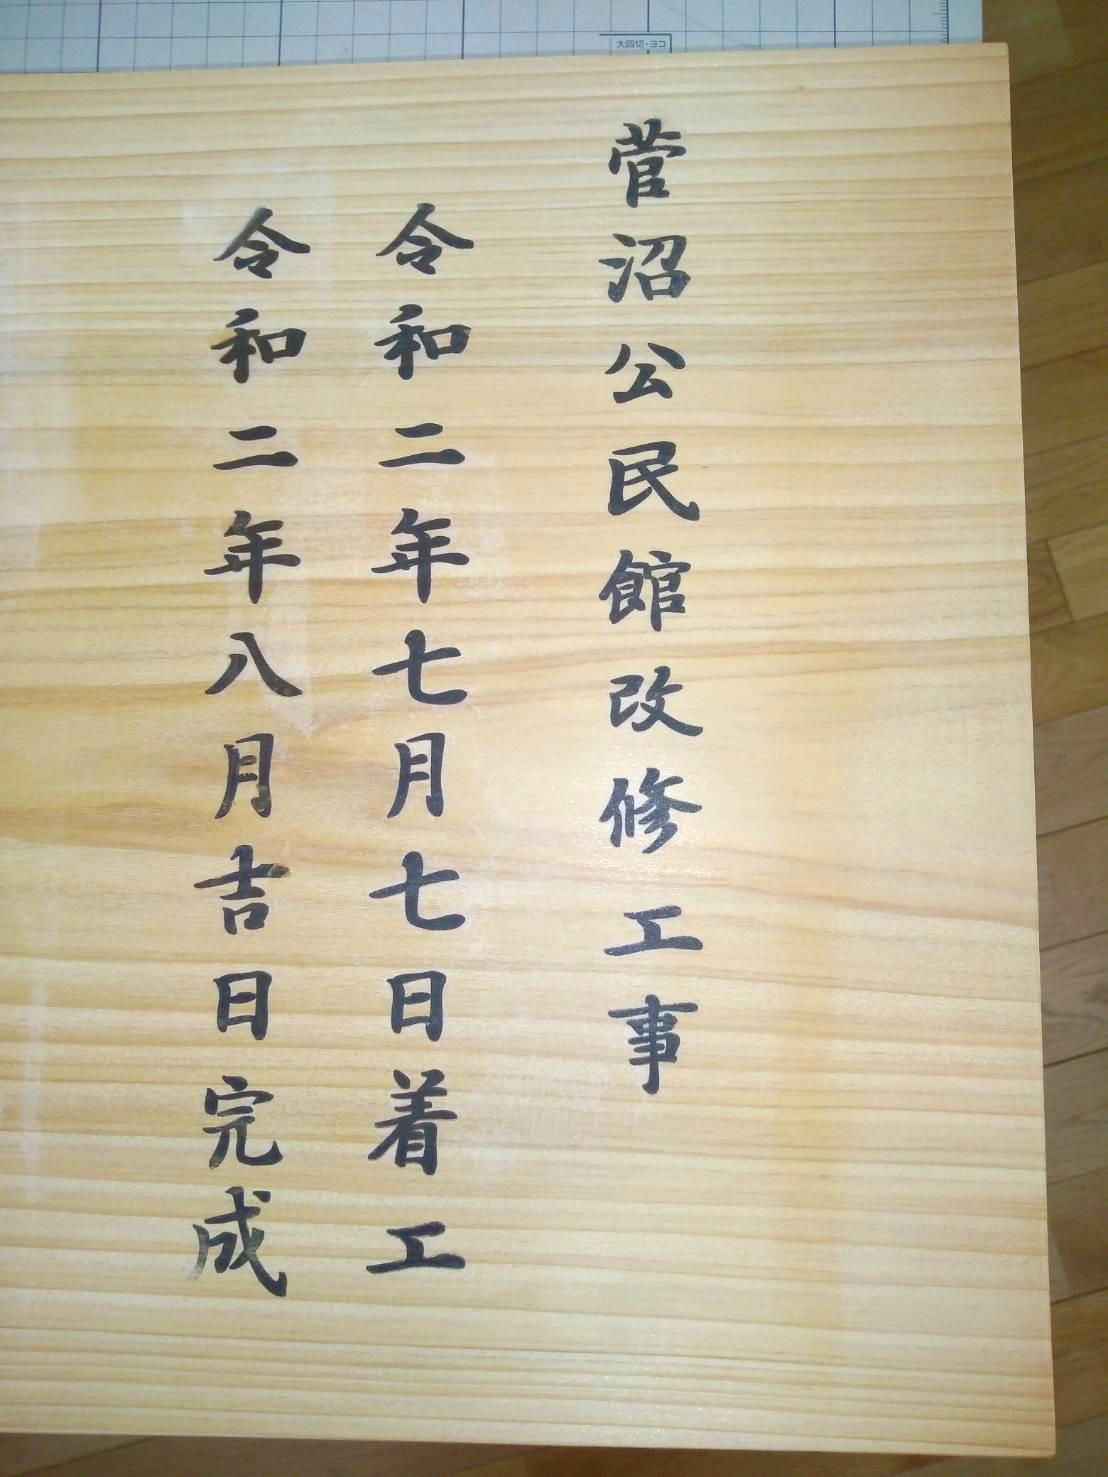 大四切・ヨコ
菅沼公民館改修工事
令和二年七月七日着工
令和二年八月吉日完成